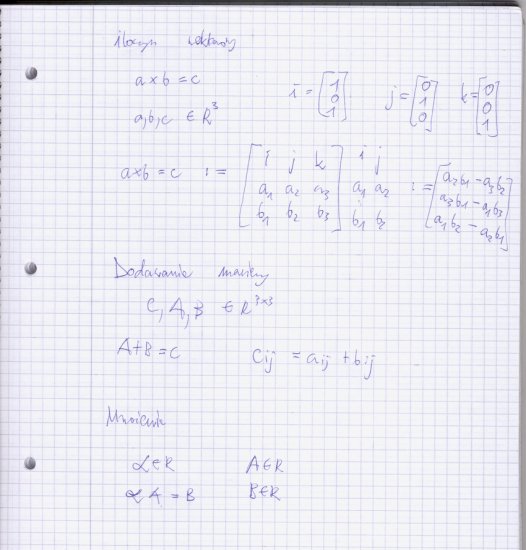 iloczyn wektorowy
a×b = c
i = [1 0 1] j = [0 1 0] k = [0 0 1]
a,b,c ∈ R^3
a×b = c := [i j k; a1 a2 a3; b1 b2 b3] i j; a1 a2; b1 b2 := [a2b1 - a3b2; a3b1 - a1b3; a1b2 - a2b1]
Dodawanie macierzy
C, A, B ∈ R^3×3
A+B = C cij = aij + bij
Mnożenie
α∈R A∈R
αA = B B∈R